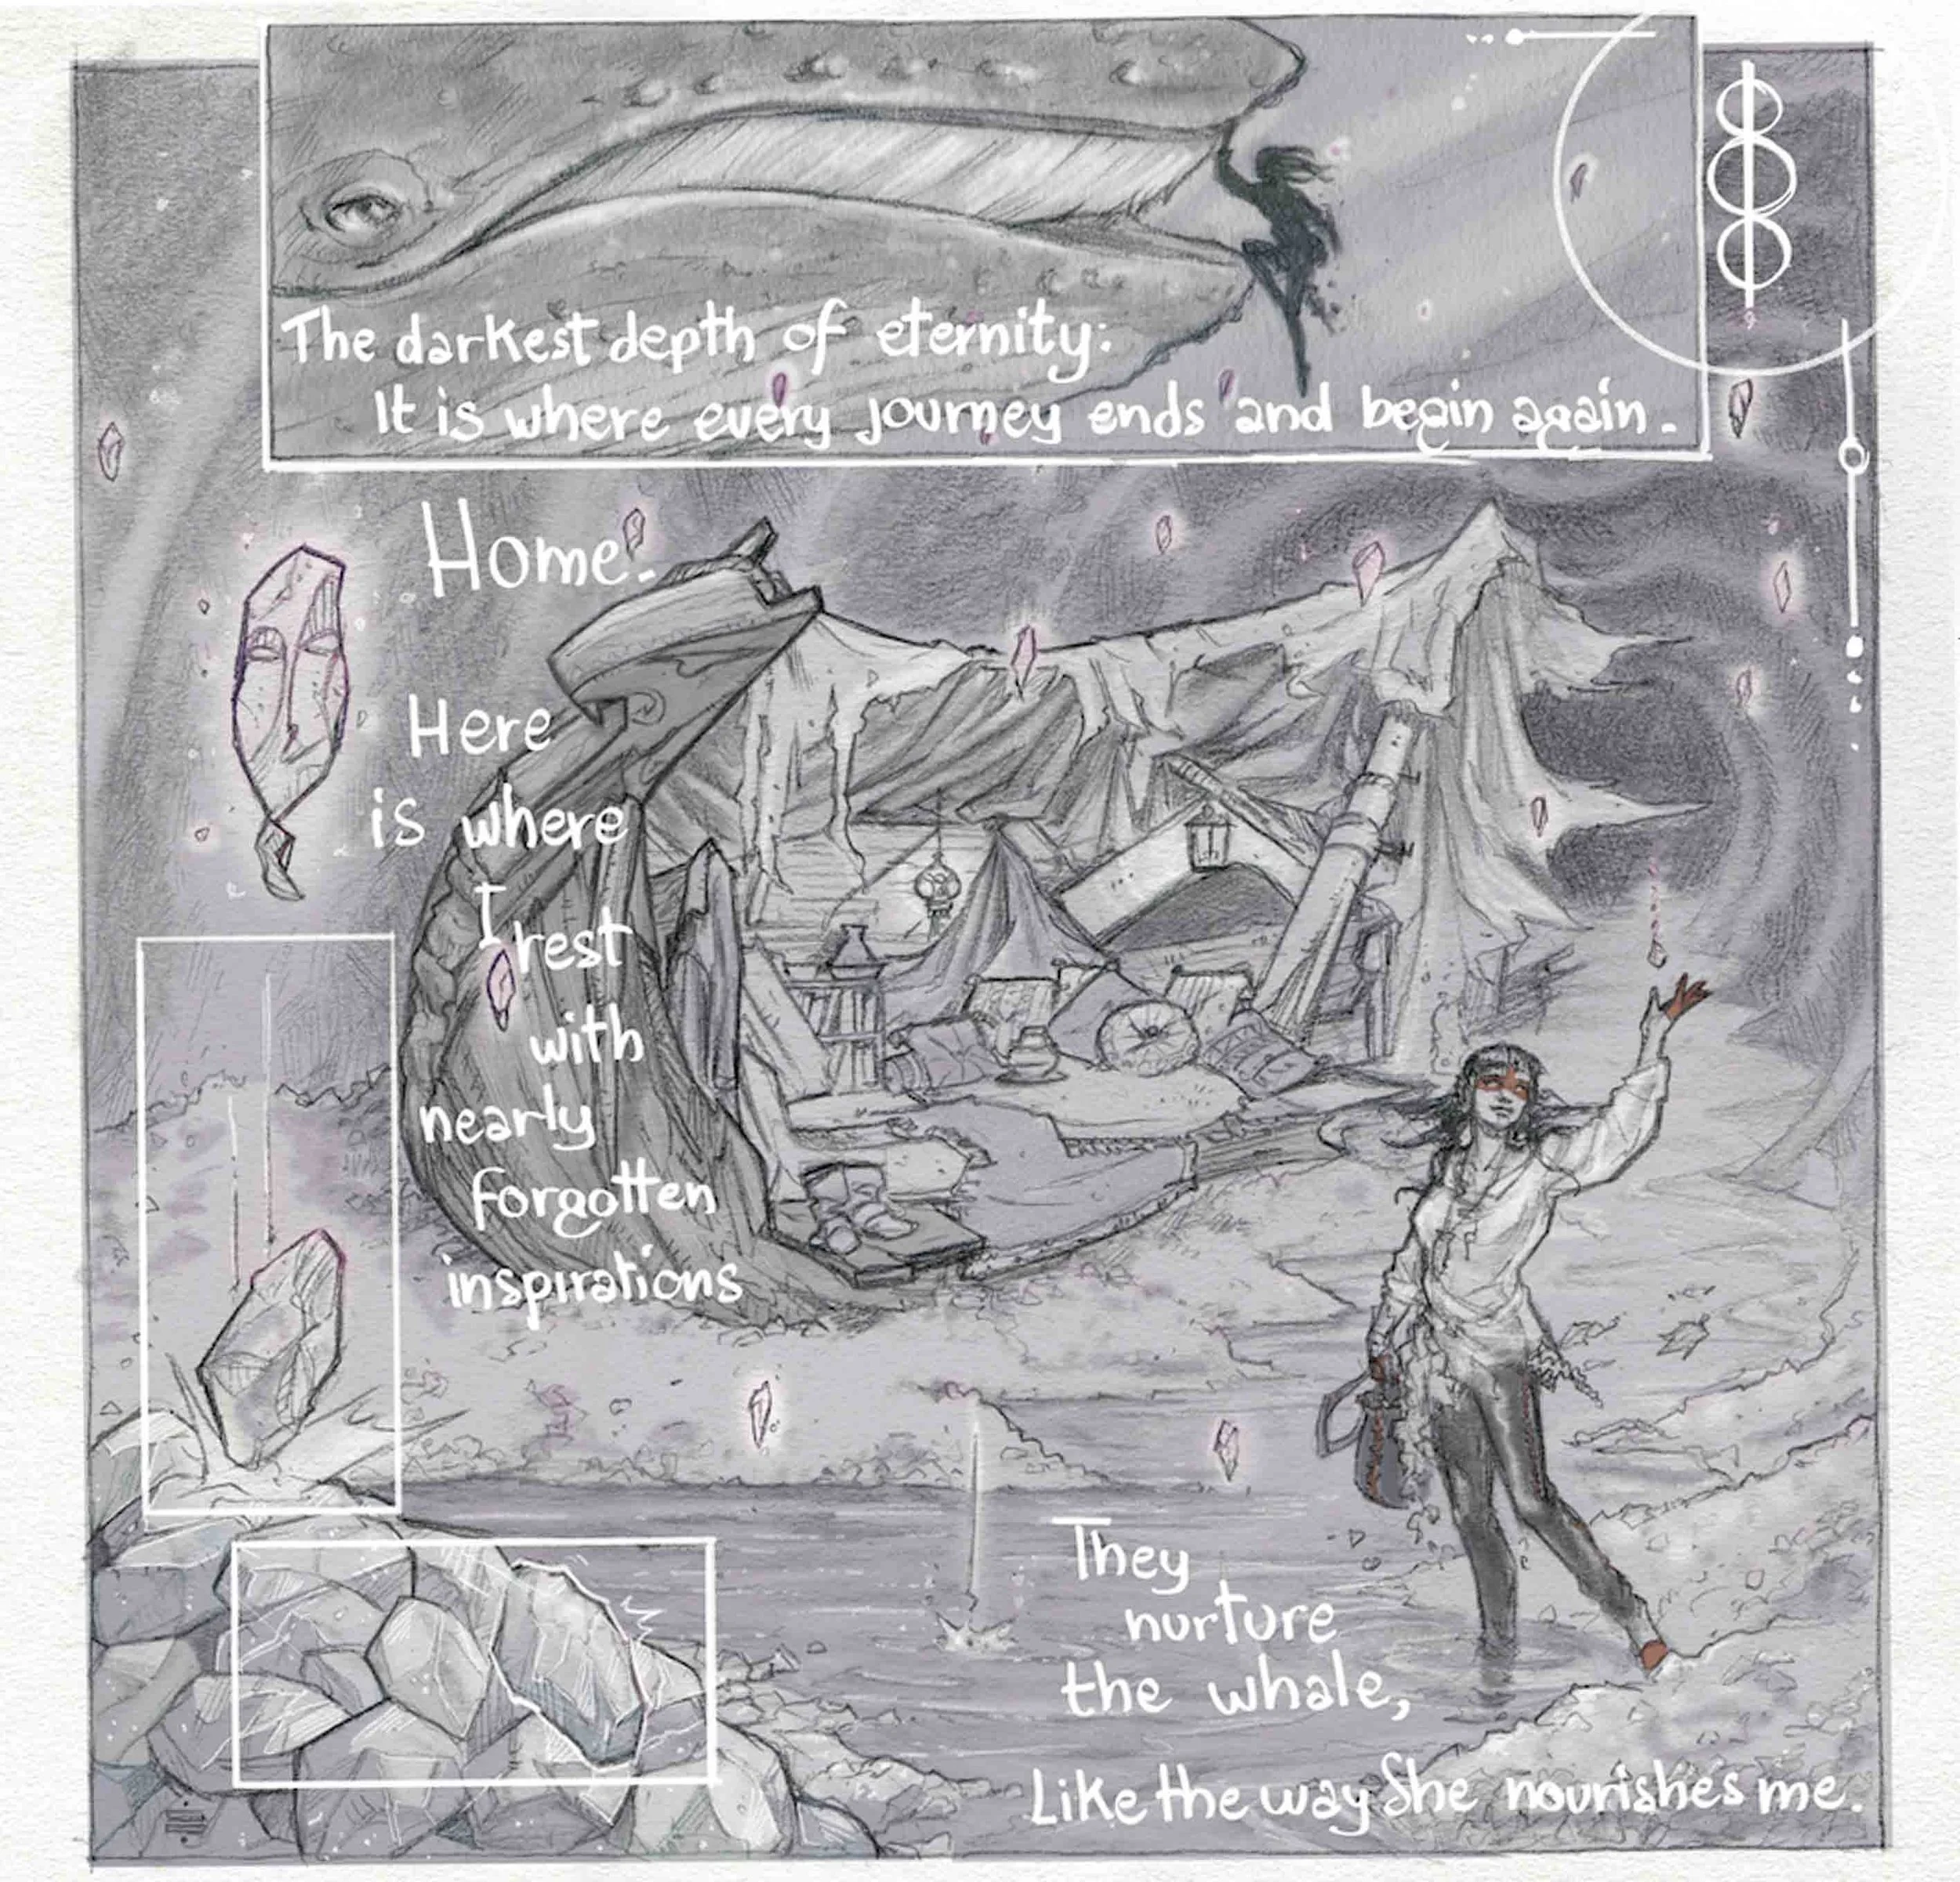 The darkest depth of eternity:
It is where every journey ends and begin again.
Home.
Here
is where
I rest
with
nearly
forgotten
inspirations
They
nurture
the whale,
Like the way She nourishes me.